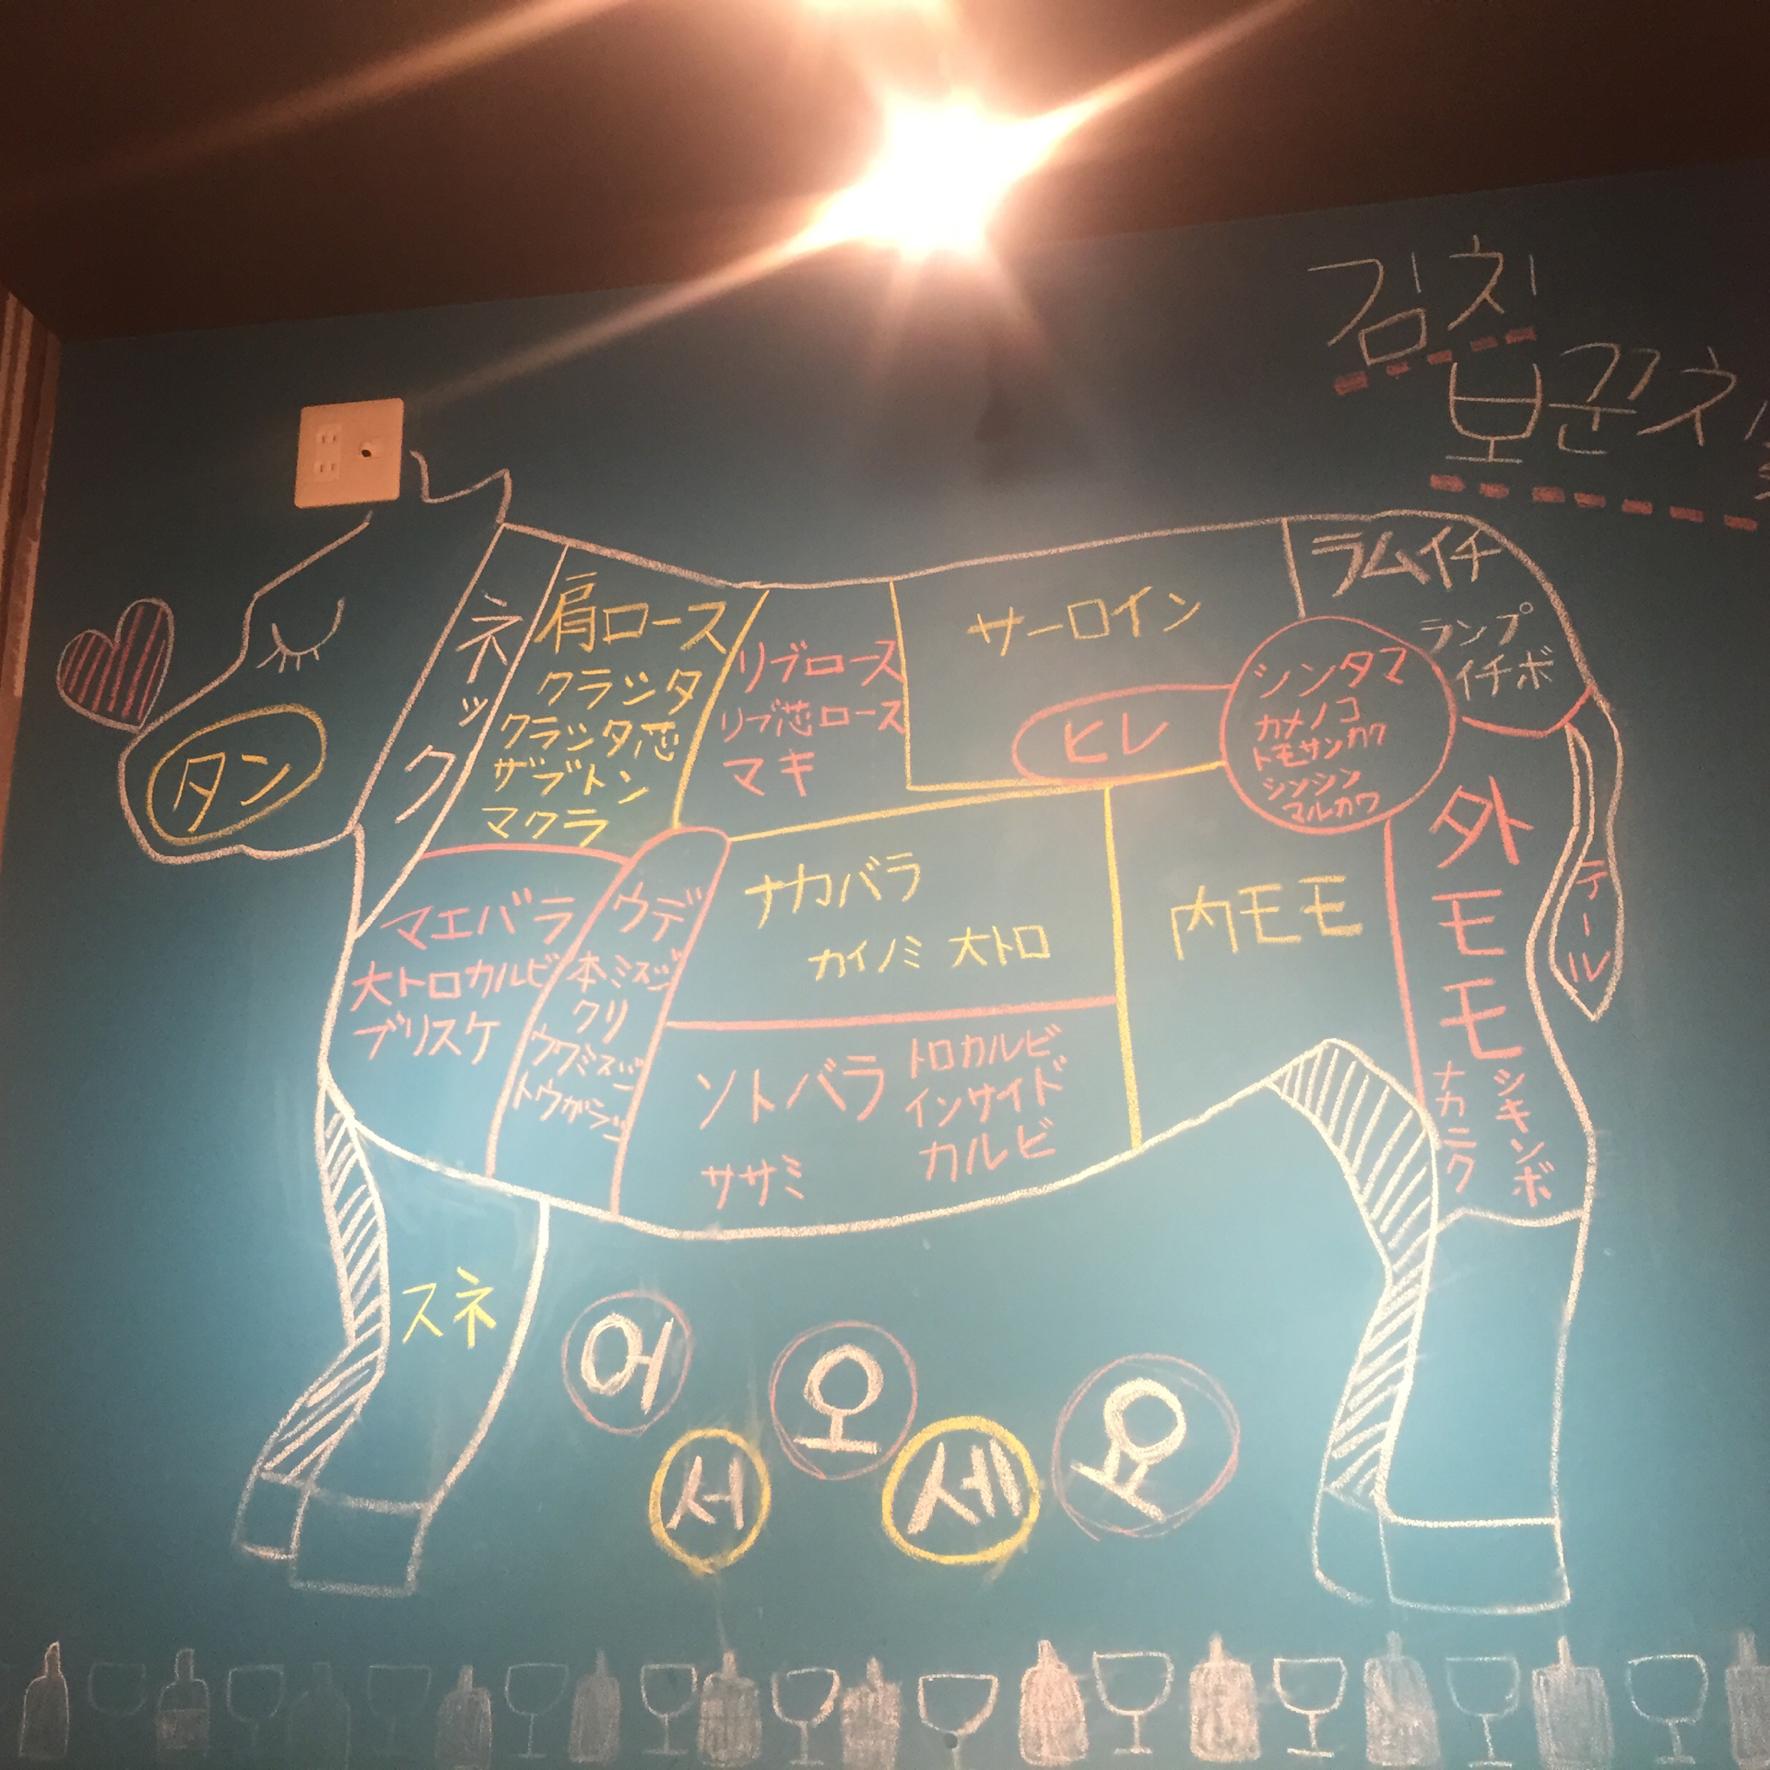 김치
보끈
タン
ネック
肩ロース
クラシタ
クラシタ芯
ザブトン
マクラ
リブロース
リブ芯ロース
マキ
サーロイン
ヒレ
ラムイチ
ランプ
イチボ
シンタマ
カメノコ
トモサンカク
シンシン
マルカワ
マエバラ
大トロカルビ
ブリスケ
ウデ
本ミスジ
クリ
ウワミスジ
トウガラシ
ナカバラ
カイノミ 大トロ
ソトバラ
ササミ
トロカルビ
インサイド
カルビ
内モモ
外モモ
ナカニク
シキンボ
テール
スネ
어서오세요